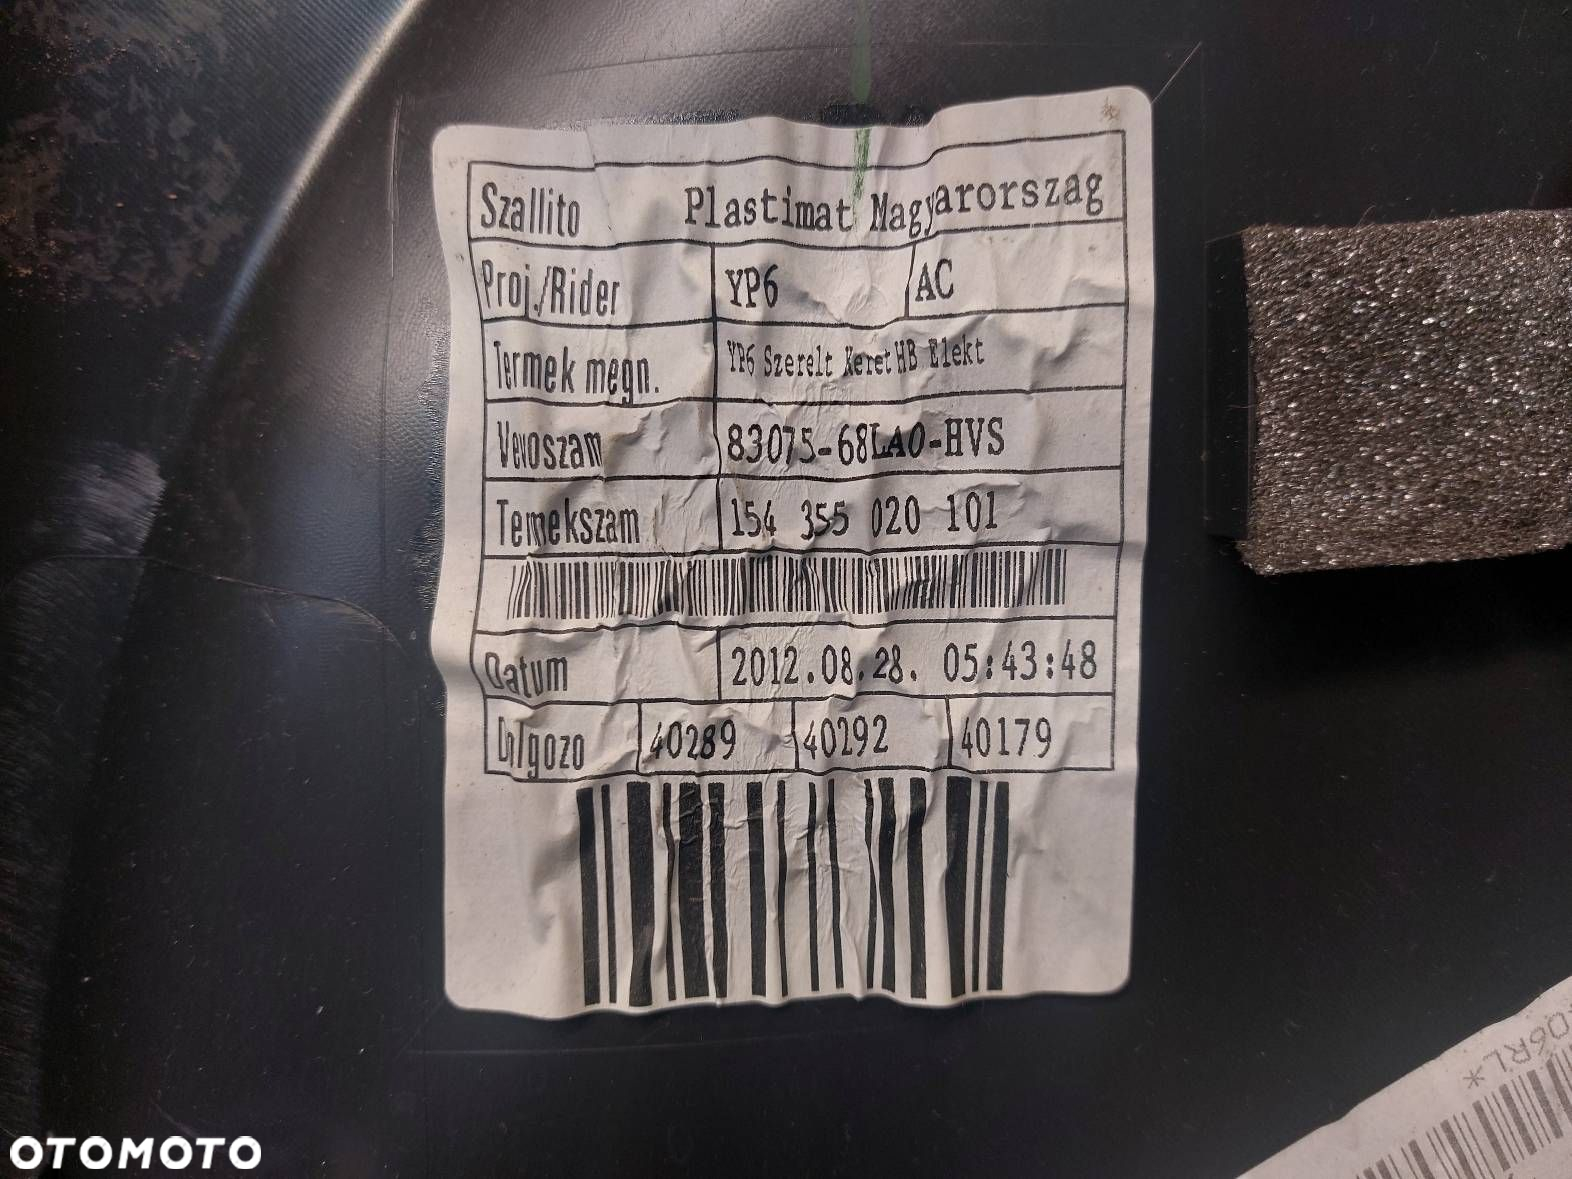 Szallito Plastimat Magyarorszag
Proj./Rider YP6 AC
Termek megn. YP6 Szerelt Keret HB Elekt
Vevoszam 83075-68LA0-HVS
Termekszam 154 355 020 101
Datum 2012.08.28. 05:43:48
Dolgozo 40289 40292 40179
06RL*
OTOMOTO